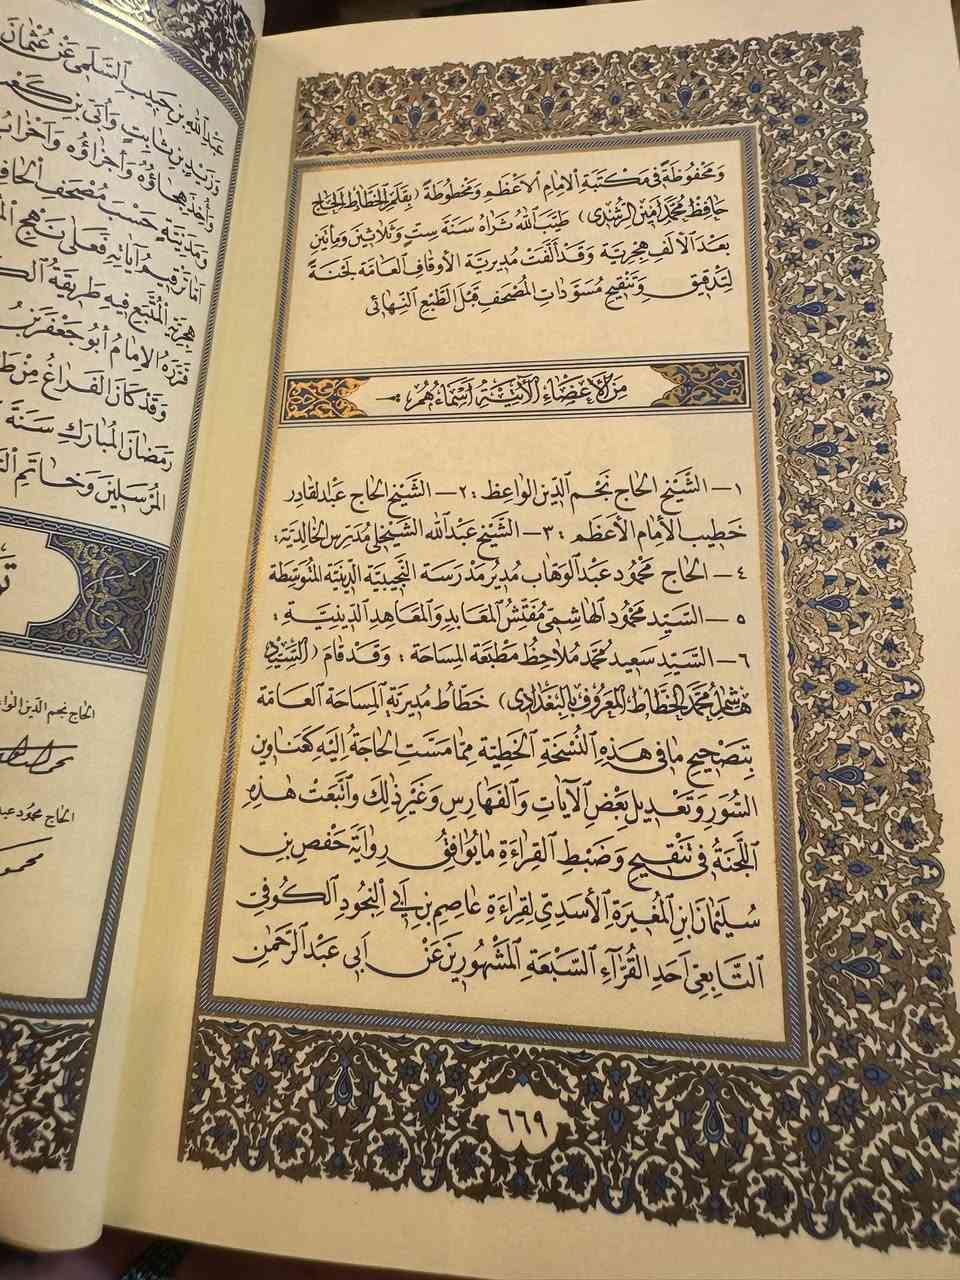 وَمَحْفُوظَةً فِي مَكْتَبَةِ الإِمَامِ الأَعْظَمِ وَمَخْطُوطَةً (بِقَلَمِ الخَطَّاطِ الحَاج
حَافِظ مُحَمَّد أَمِين الرُّشْدِي) طَيَّبَ اللهُ ثَرَاهُ سَنَةَ سِتٍّ وَثَلَاثِينَ وَمِأَتَيْنِ
بَعْدَ الأَلْفِ هِجْرِيَّة وَقَدْ أَلَّفَتْ مُدِيرِيَّةُ الأَوْقَافِ العَامَّة لَجْنَةً
لِتَدْقِيقِ وَتَنْقِيحِ مُسَوَّدَاتِ المُصْحَفِ قَبْلَ الطَّبْعِ النِّهَائِي
مِنَ الأَعْضَاءِ الآتِيَةِ أَسْمَاءُهُمْ
١ – الشَّيْخ الحَاج نَجْم الدِّين الوَاعِظ : ٢ – الشَّيْخ الحَاج عَبْدُ القَادِر
خَطِيب الإِمَام الأَعْظَم : ٣ – الشَّيْخ عَبْدُ الله الشَّيْخَلِي مُدَرِّس الخَالِدِيَّة :
٤ – الحَاج مَحْمُود عَبْدُ الوَهَّاب مُدِير مَدْرَسَة النَّجِيبِيَّة الدِّينِيَّة المُتَوَسِّطَة
٥ – السَّيِّد مَحْمُود الهَاشِمِي مُفَتِّش المَعَابِد وَالمَعَاهِد الدِّينِيَّة :
٦ – السَّيِّد سَعِيد مُحَمَّد مُلَاحِظ مَطْبَعَة المِسَاحَة : وَقَدْ قَامَ (السَّيِّد
هَاشِم مُحَمَّد الخَطَّاط المَعْرُوف بِالبَغْدَادِي) خَطَّاط مُدِيرِيَّة المِسَاحَة العَامَّة
بِتَصْحِيحِ مَا فِي هَذِهِ النُّسْخَةِ الخَطِّيَّةِ مِمَّا مَسَّتِ الحَاجَةُ إِلَيْهِ كَعَنَاوِين
السُّوَرِ وَتَعْدِيل بَعْضِ الآيَاتِ وَالفَهَارِس وَغَيْرِ ذَلِكَ وَاتَّبَعَتْ هَذِهِ
اللَّجْنَةُ فِي تَنْقِيحِ وَضَبْطِ القِرَاءَةِ مَا يُوَافِقُ رِوَايَةَ حَفْصِ بْنِ
سُلَيْمَانَ ابْنِ المُغِيرَةِ الأَسَدِيِّ لِقِرَاءَةِ عَاصِمِ بْنِ أَبِي النَّجُودِ الكُوفِي
التَّابِعِي أَحَدِ القُرَّاءِ السَّبْعَةِ المَشْهُورِينَ عَنْ أَبِي عَبْدِ الرَّحْمَنِ
٦٦٩
عَبْدِ اللهِ بْنِ حَبِيبٍ السُّلَمِيِّ عَنْ عُثْمَانَ
وَزَيْدِ بْنِ ثَابِتٍ وَأُبَيِّ بْنِ كَعْبٍ
وَأُخِذَ هِجَاؤُهُ وَأَجْزَاؤُهُ وَأَحْزَابُ
وَمَدَنِيَّتِهِ حَسَبَ مُصْحَفِ الحَافِ
أَمَّا تَرْقِيمُ آيَاتِهِ فَعَلَى نَهْجِ
هِجْرِيَّة المُتَّبَعِ فِيهِ طَرِيقَةُ
قَرَّرَهُ الإِمَامُ أَبُو جَعْفَر
وَقَدْ كَانَ الفَرَاغُ مِنْ
رَمَضَانَ المُبَارَكِ سَنَةَ
المُرْسَلِينَ وَخَاتَمِ
الحاج نجم الدين الواعظ
الحاج محمود عبد